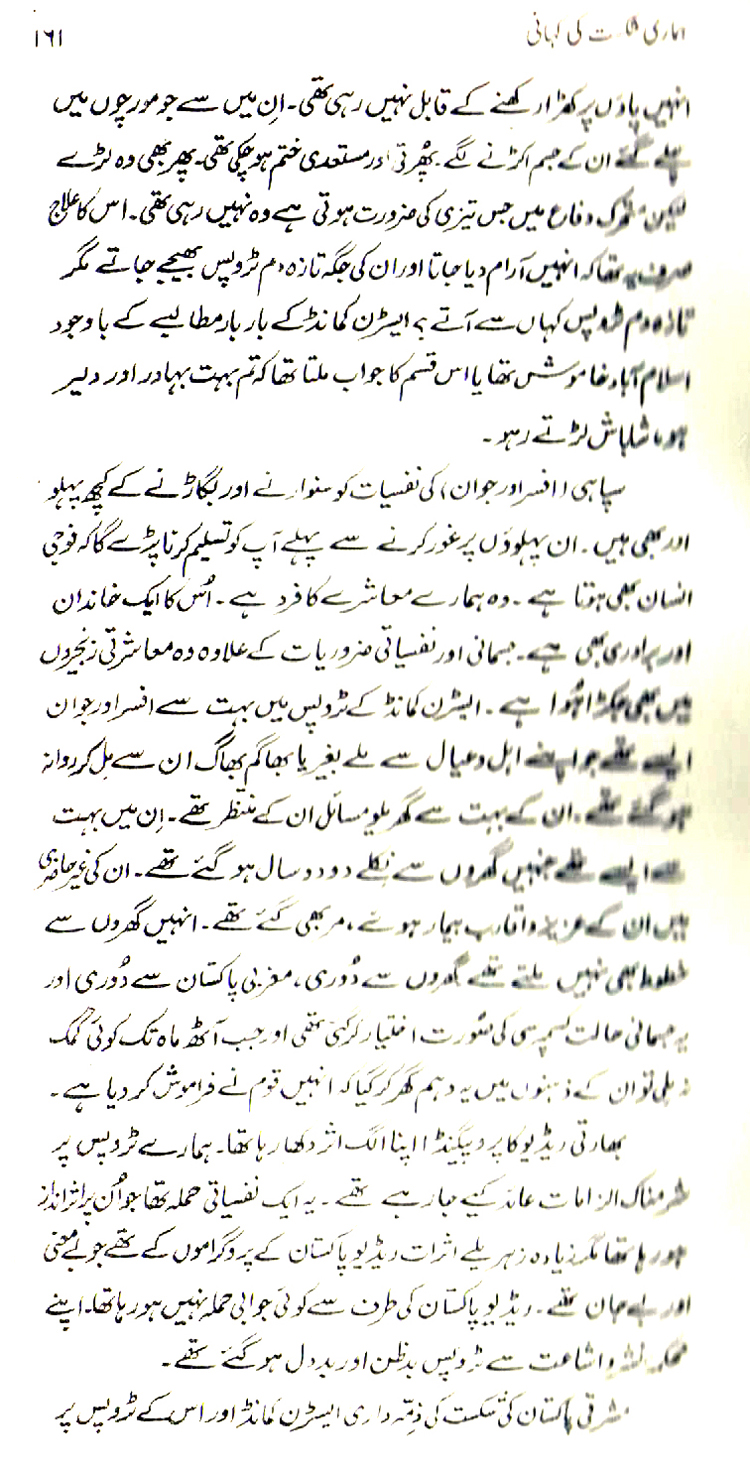 ہماری شکست کی کہانی ۱۶۱
انہیں پاؤں پر کھڑا رکھنے کے قابل نہیں رہی تھی۔ اِن میں سے جو مورچوں میں
چلے گئے ان کے جسم اکڑنے لگے۔ پھُرتی اور مستعدی ختم ہو چکی تھی۔ پھر بھی وہ لڑے
لیکن متحرک دفاع میں جس تیزی کی ضرورت ہوتی ہے وہ نہیں رہی تھی۔ اس کا علاج
صرف یہ تھا کہ انہیں آرام دیا جاتا اور ان کی جگہ تازہ دم ٹروپس بھیجے جاتے مگر
تازہ دم ٹروپس کہاں سے آتے؟ ایسٹرن کمانڈ کے بار بار مطالبے کے باوجود
اسلام آباد خاموش تھا یا اس قسم کا جواب ملتا تھا کہ تم بہت بہادر اور دلیر
ہو، شاباش لڑتے رہو۔
سپاہی (افسر اور جوان) کی نفسیات کو سنوارنے اور بگاڑنے کے کچھ پہلو
اور بھی ہیں۔ ان پہلوؤں پر غور کرنے سے پہلے آپ کو تسلیم کرنا پڑے گا کہ فوجی
انسان بھی ہوتا ہے۔ وہ ہمارے معاشرے کا فرد ہے۔ اُس کا ایک خاندان
اور برادری بھی ہے۔ جسمانی اور نفسیاتی ضروریات کے علاوہ وہ معاشرتی زنجیروں
میں بھی جکڑا ہُوا ہے۔ ایسٹرن کمانڈ کے ٹروپس میں بہت سے افسر اور جوان
ایسے تھے جو اپنے اہل و عیال سے ملے بغیر یا بھاگم بھاگ ان سے مِل کر روانہ
ہو گئے تھے۔ ان کے بہت سے گھریلو مسائل ان کے منتظر تھے۔ اِن میں بہت
سے ایسے تھے جنہیں گھروں سے نکلے دو دو سال ہو گئے تھے۔ ان کی غیر حاضری
میں ان کے عزیز و اقارب بیمار ہوئے، مر بھی گئے تھے۔ انہیں گھروں سے
خطوط بھی نہیں ملتے تھے۔ گھروں سے دُوری، مغربی پاکستان سے دُوری اور
یہ جسمانی حالت کسمپرسی کی صُورت اختیار کر گئی تھی اور جب آٹھ ماہ تک کوئی کمک
نہ ملی تو ان کے ذہنوں میں یہ وہم گھر کر گیا کہ انہیں قوم نے فراموش کر دیا ہے۔
بھارتی ریڈیو کا پروپیگنڈا اپنا الگ اثر دکھا رہا تھا۔ ہمارے ٹروپس پر
شرمناک الزامات عائد کیے جا رہے تھے۔ یہ ایک نفسیاتی حملہ تھا جو اُن پر اثر انداز
ہو رہا تھا مگر زیادہ زہریلے اثرات ریڈیو پاکستان کے پروگراموں کے تھے جو بے معنی
اور بے جان تھے۔ ریڈیو پاکستان کی طرف سے کوئی جوابی حملہ نہیں ہو رہا تھا۔ اپنے
محکمہ نشر و اشاعت سے ٹروپس بدظن اور بد دل ہو گئے تھے۔
مشرقی پاکستان کی شکست کی ذِمّہ داری ایسٹرن کمانڈ اور اس کے ٹروپس پر